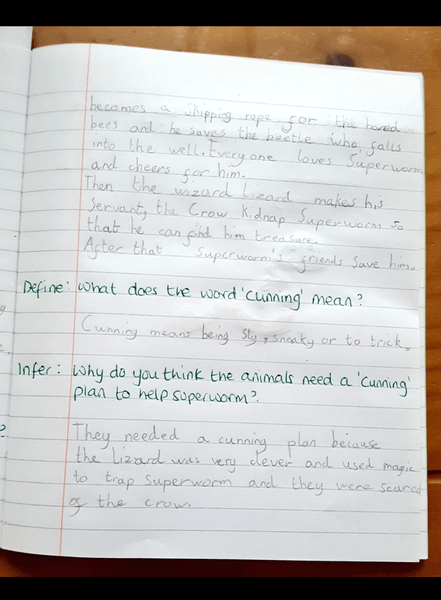 becomes a skipping rope for the bored
bees and he saves the beetle who falls
into the well. Everyone loves Superworm
and cheers for him.
Then the wizard Lizard makes his
Servant, the Crow Kidnap Superworm so
that he can find him treasure.
After that Superworm's friends save him.
Define: What does the word 'cunning' mean?
Cunning means being sly, sneaky or to trick.
Infer: Why do you think the animals need a 'cunning'
plan to help superworm?
?
They needed a cunning plan because
the Lizard was very clever and used magic
to trap Superworm and they were scared
of the crow.